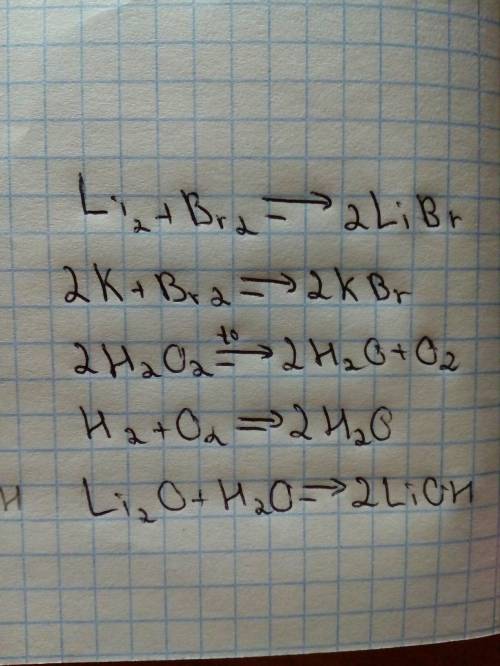 Li₂ + Br₂ ⟹ 2LiBr
2K + Br₂ ⟹ 2KBr
2H₂O₂ =t°⟹ 2H₂O + O₂
H₂ + O₂ ⟹ 2H₂O
H Li₂O + H₂O ⟹ 2LiOH